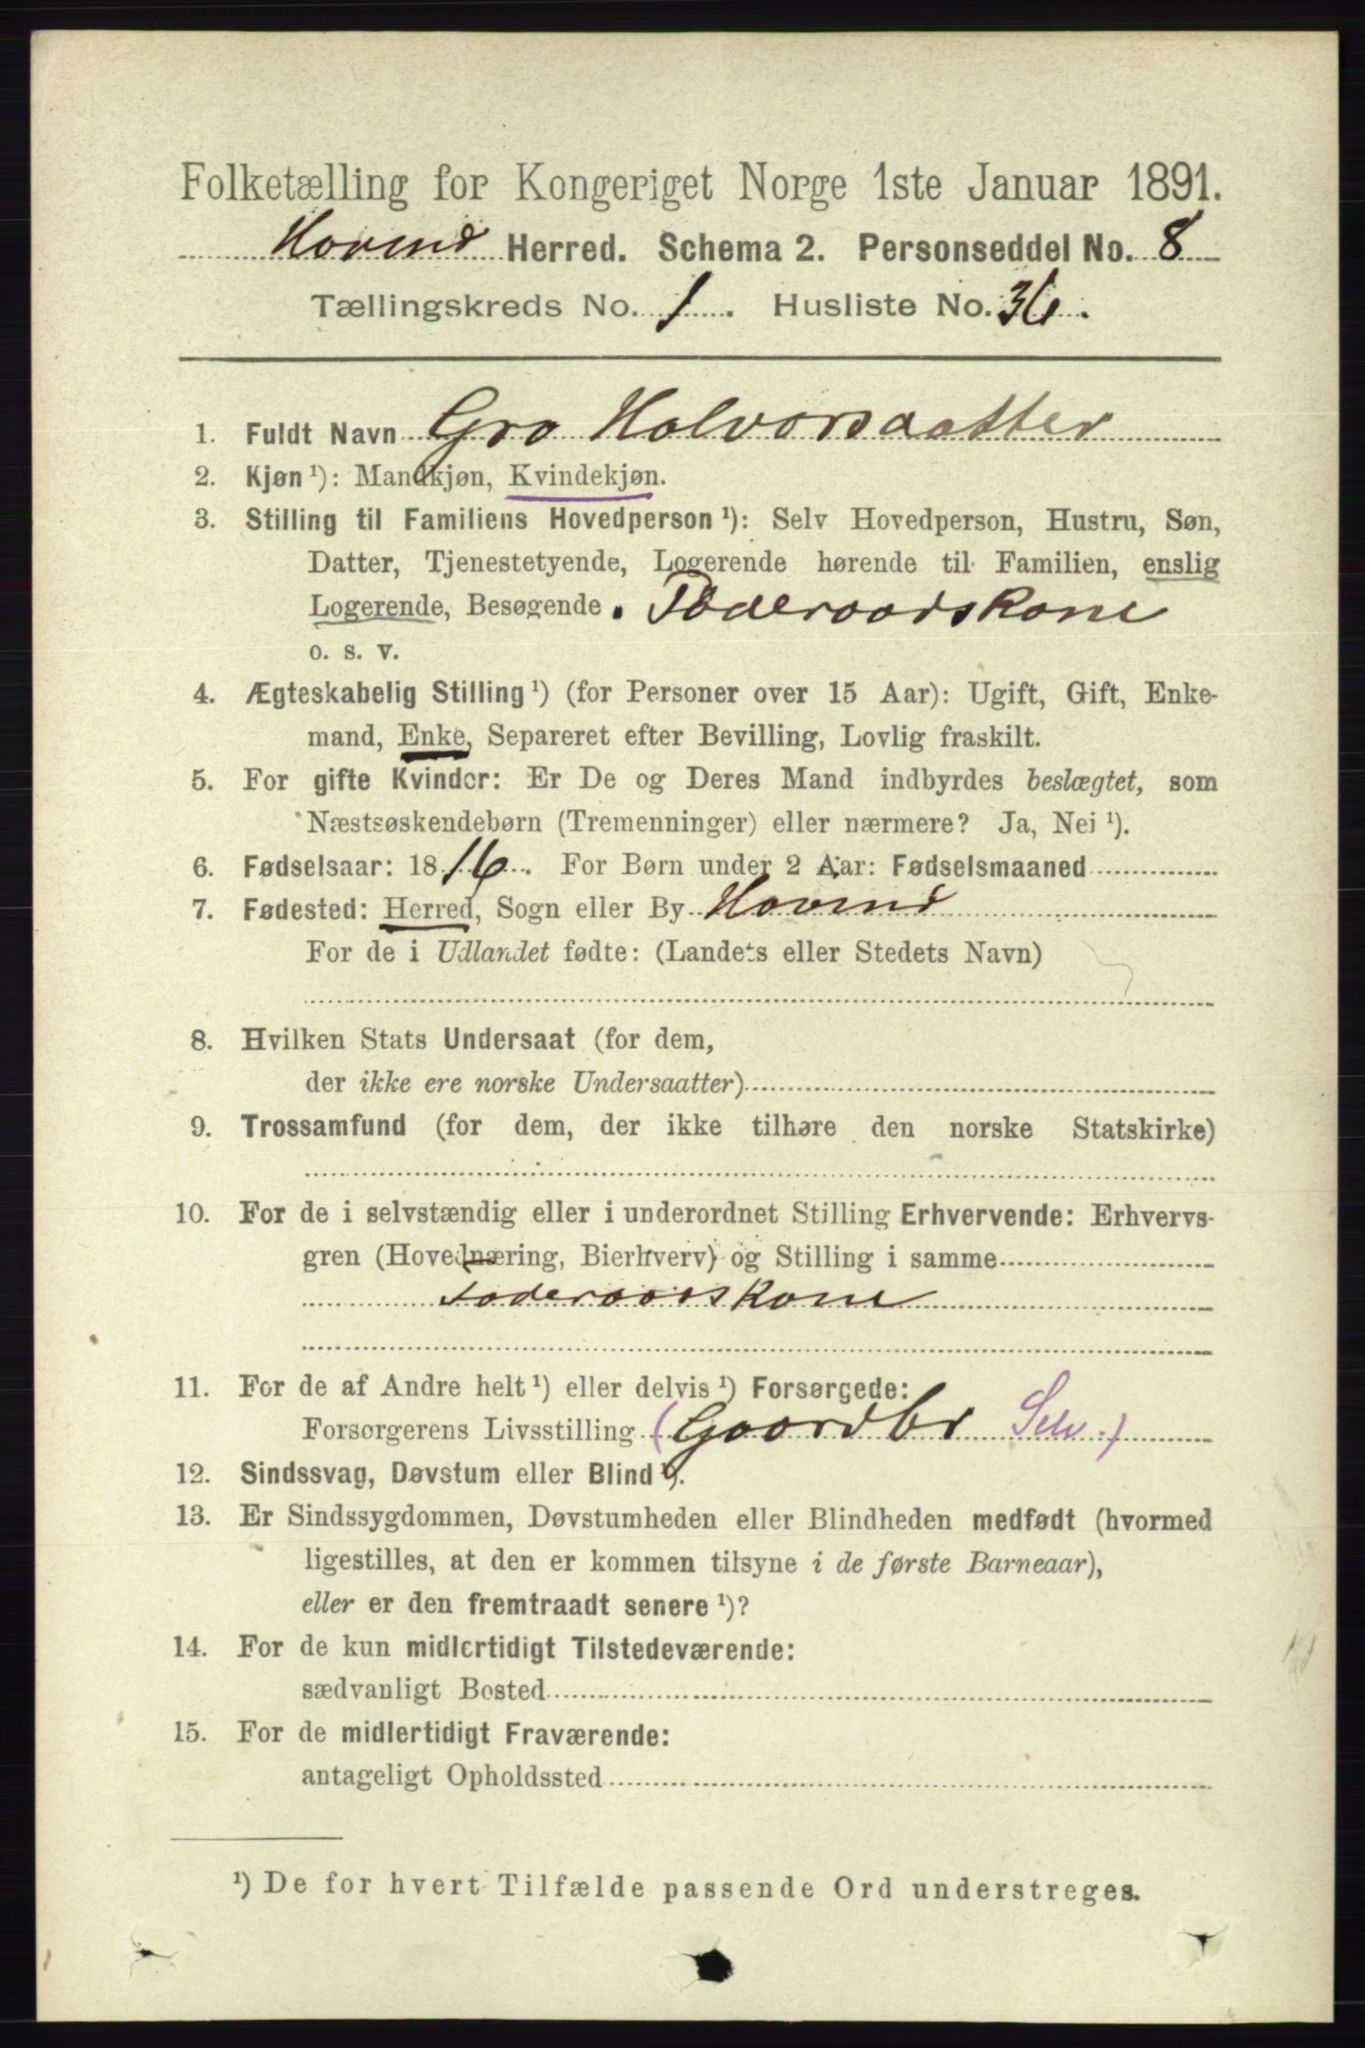 Folketælling for Kongeriget Norge 1ste Januar 1891.
Hovind Herred. Schema 2. Personseddel No. 8
Tællingskreds No. 1. Husliste No. 36.
1. Fuldt Navn Gro Halvorsdatter
2. Kjøn ¹): Mandkjøn, Kvindekjøn.
3. Stilling til Familiens Hovedperson ¹): Selv Hovedperson, Hustru, Søn,
Datter, Tjenestetyende, Logerende hørende til Familien, enslig
Logerende, Besøgende. Føderaadskone
o. s. v.
4. Ægteskabelig Stilling ¹) (for Personer over 15 Aar): Ugift, Gift, Enke-
mand, Enke, Separeret efter Bevilling, Lovlig fraskilt.
5. For gifte Kvinder: Er De og Deres Mand indbyrdes beslægtet, som
Næstsøskendebørn (Tremenninger) eller nærmere? Ja, Nei ¹).
6. Fødselsaar: 1816. For Børn under 2 Aar: Fødselsmaaned
7. Fødested: Herred, Sogn eller By Hovind
For de i Udlandet fødte: (Landets eller Stedets Navn)
8. Hvilken Stats Undersaat (for dem,
der ikke ere norske Undersaatter)
9. Trossamfund (for dem, der ikke tilhøre den norske Statskirke)
10. For de i selvstændig eller i underordnet Stilling Erhvervende: Erhvervs-
gren (Hovednæring, Bierhverv) og Stilling i samme
Føderaadskone
11. For de af Andre helt ¹) eller delvis ¹) Forsørgede:
Forsørgerens Livsstilling (Gaardbr Selv.)
12. Sindssvag, Døvstum eller Blind ¹).
13. Er Sindssygdommen, Døvstumheden eller Blindheden medfødt (hvormed
ligestilles, at den er kommen tilsyne i de første Barneaar),
eller er den fremtraadt senere ¹)?
14. For de kun midlertidigt Tilstedeværende:
sædvanligt Bosted
15. For de midlertidigt Fraværende:
antageligt Opholdssted
¹) De for hvert Tilfælde passende Ord understreges.